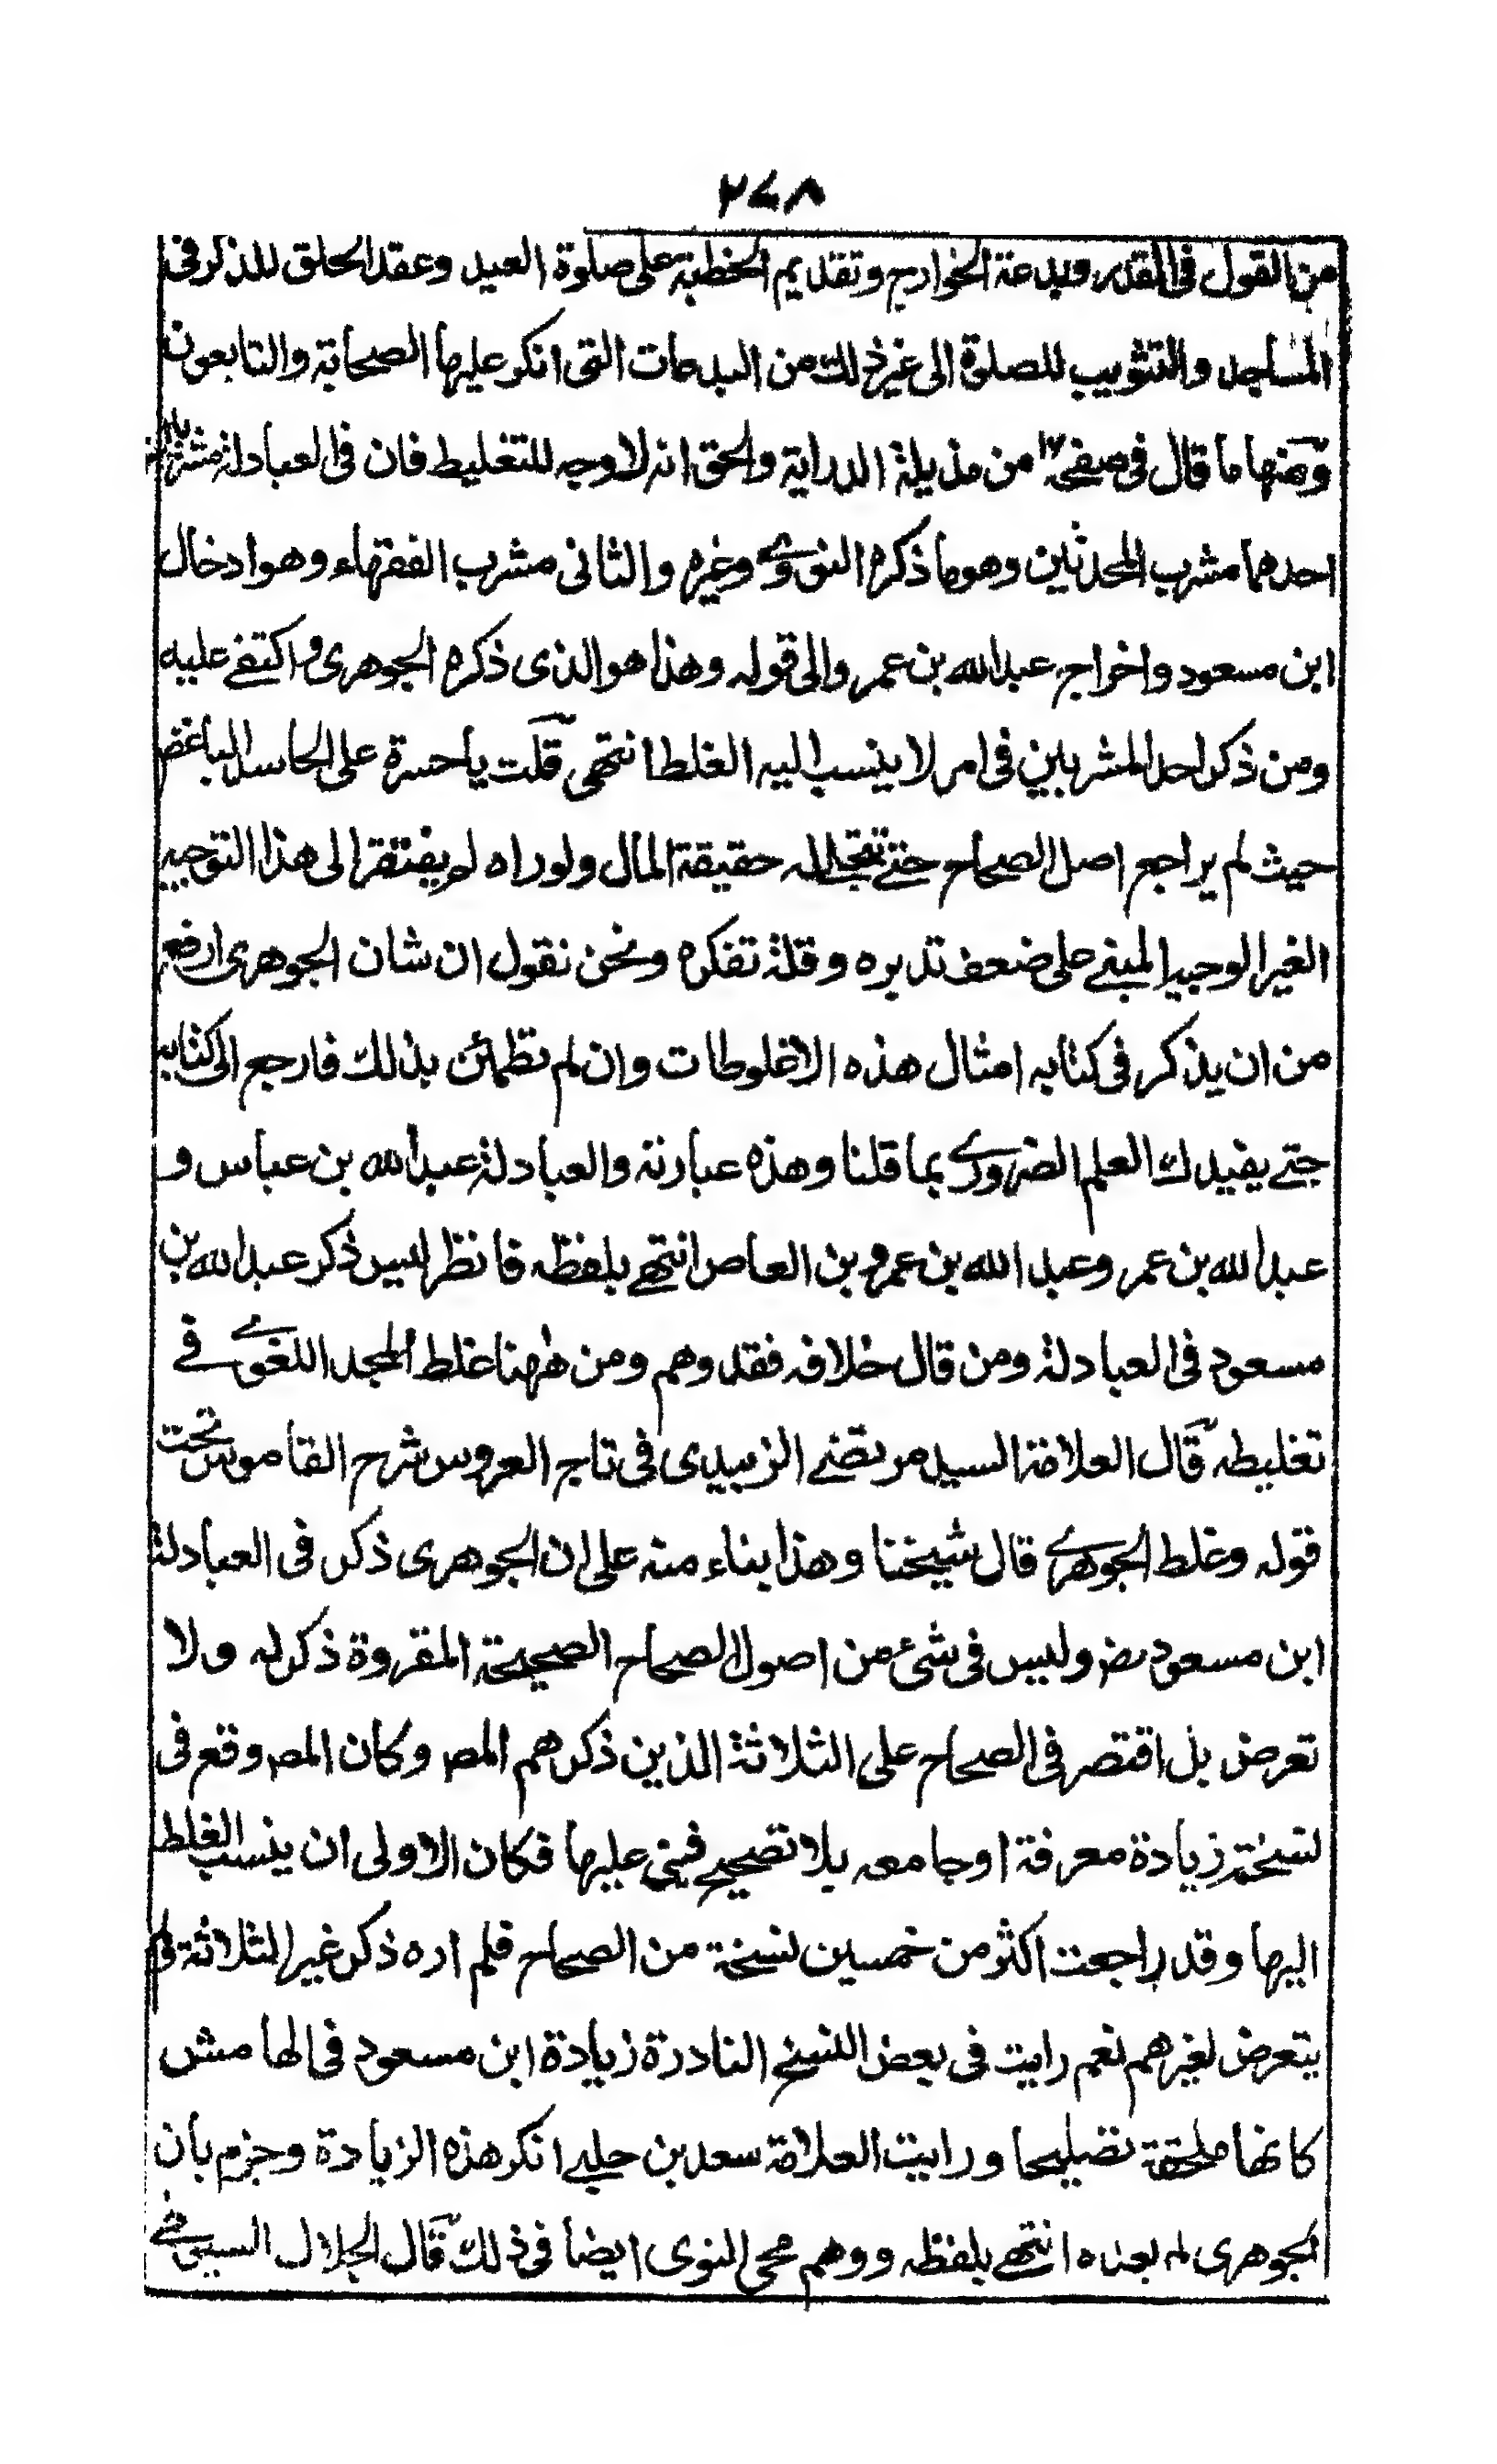 ٢٧٨
من القول فى القدر وبدعة الخوارج وتقديم الخطبة على صلوة العيد وعقد الحلق للذكر فى
المساجد والتثويب للصلوة الى غير ذلك من البدعات التى انكر عليها الصحابة والتابعون
ومنها ما قال فى صفحه ١٧ من مذيلة الدراية والحق انه لا وجه للتغليط فان فى العبادلة
احدهما مشرب المحدثين وهو ما ذكره النووى وغيره والثانى مشرب الفقهاء وهو ادخال
ابن مسعود واخراج عبد الله بن عمر والى قوله وهذا هو الذى ذكره الجوهرى واكتفى عليه
ومن ذكر احد المشربين فى امر لا ينسب اليه الغلط انتهى قلت يا حسرة على الحاسد الباغض
حيث لم يراجع اصل الصحاح حتى تنجلى له حقيقة المال ولو راه لم يفتقر الى هذا التوجيه
الغير الوجيه المبنى على ضعف تدبره وقلة تفكره ونحن نقول ان شان الجوهرى ارفع
من ان يذكر فى كتابه امثال هذه الاغلوطات وان لم تطمئن بذلك فارجع الى كتابه
حتى يفيدك العلم الضرورى بما قلنا وهذه عبارته والعبادلة عبد الله بن عباس و
عبد الله بن عمر وعبد الله بن عمرو بن العاص انتهى بلفظه فانظر اليس ذكر عبد الله بن
مسعود فى العبادلة ومن قال خلافه فقد وهم ومن ههنا غلط المجد اللغوى فى
تغليطه قال العلامة السيد مرتضى الزبيدى فى تاج العروس شرح القاموس تحت
قوله وغلط الجوهرى قال شيخنا وهذا بناء منه على ان الجوهرى ذكر فى العبادلة
ابن مسعود رض وليس فى شئ من اصول الصحاح الصحيحة المقروة ذكر له ولا
تعرض بل اقتصر فى الصحاح على الثلاثة الذين ذكرهم المص وكان المص وقع فى
نسخة زيادة معرفة او جامعه بلا تصحيح فبنى عليها فكان الاولى ان ينسب الغلط
اليها وقد راجعت اكثر من خمسين نسخة من الصحاح فلم اره ذكر غير الثلاثة ولم
يتعرض لغيرهم نعم رايت فى بعض النسخ النادرة زيادة ابن مسعود فى الهامش
كانها ملحقة تصليحا ورايت العلامة سعد بن حلبى انكر هذه الزيادة وجزم بان
الجوهرى لم يعده انتهى بلفظه ووهم محى النوى ايضا فى ذلك قال الجلال السيوطى